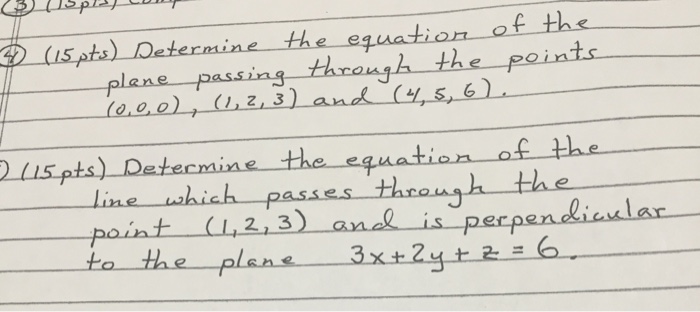 (3) (15pts)
(4) (15pts) Determine the equation of the
plane passing through the points
(0,0,0), (1,2,3) and (4,5,6).
) (15pts) Determine the equation of the
line which passes through the
point (1,2,3) and is perpendicular
to the plane 3x+2y+z=6.